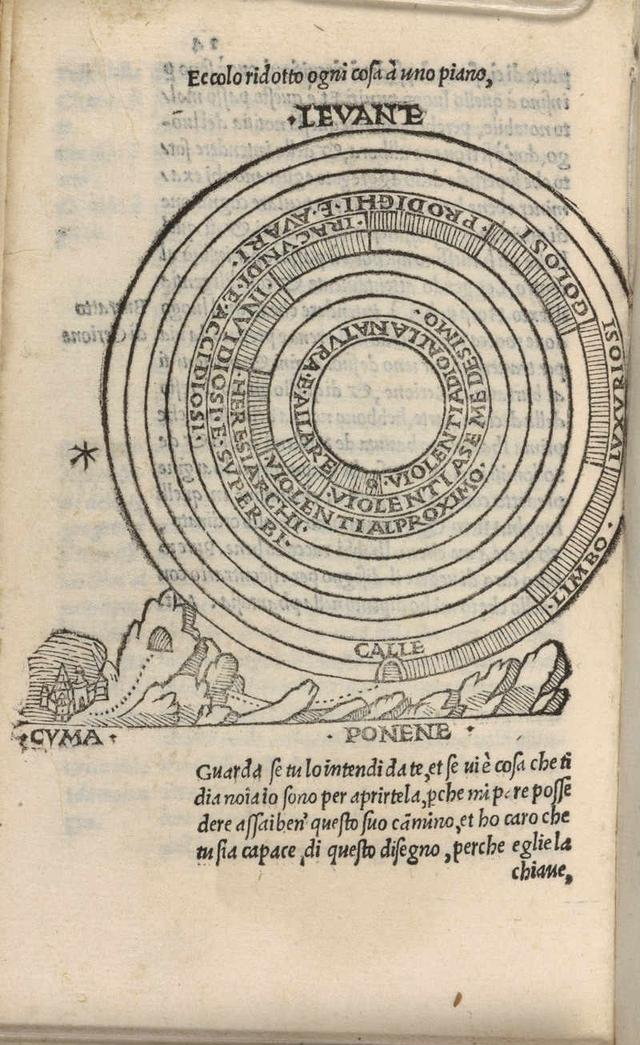 Eccolo ridotto ogni cosa à uno piano,
·LEVANTE
LIMBO·
LVXVRIOSI
GOLOSI
PRODIGHI·E·AVARI·
IRACVNDI·E·ACCIDIOSI·
INVIDIOSI·E·SVPERBI·
HERESIARCHI·
VIOLENTI ALPROXIMO·
·VIOLENTI ASE MEDESIMO·
·VIOLENTI ADIO ALLA NATVRA·E ALLARE
CALLE
·CVMA·
·PONENE·
Guarda se tu lo intendi da te, et se ui è cosa che ti
dia noia io sono per aprirtela, pche mi pare posse
dere assai ben' questo suo cāmino, et ho caro che
tu sia capace di questo disegno, perche eglie la
chiaue,